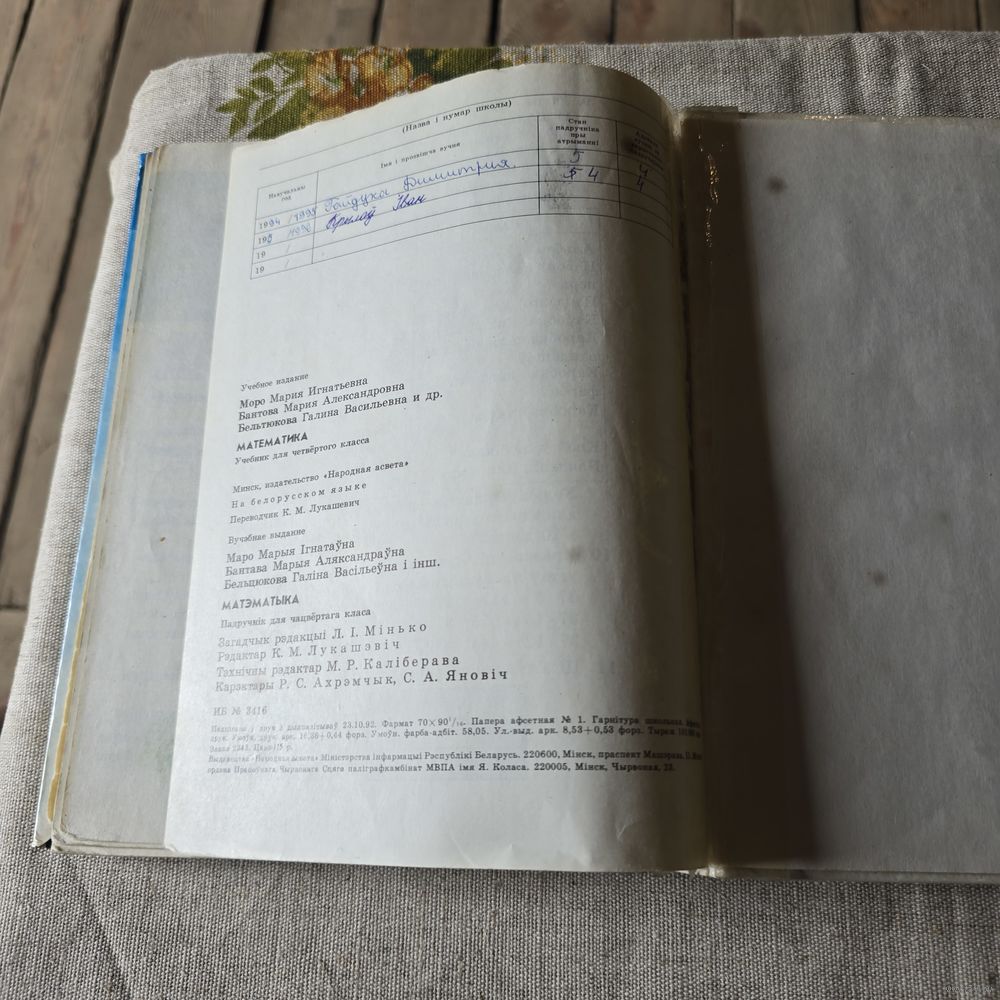 (Назва і нумар школы)
Навучальны год
Імя і прозвішча вучня
Стан падручніка пры атрыманні
1994 / 1995 Гайдука Димитрия 5 4
199 /1996 Крылоў Іван 4 4
19 /
19 /
Учебное издание
Моро Мария Игнатьевна
Бантова Мария Александровна
Бельтюкова Галина Васильевна и др.
МАТЕМАТИКА
Учебник для четвёртого класса
Минск, издательство «Народная асвета»
На белорусском языке
Переводчик К. М. Лукашевич
Вучэбнае выданне
Маро Марыя Ігнатаўна
Бантава Марыя Аляксандраўна
Бельцюкова Галіна Васільеўна і інш.
МАТЭМАТЫКА
Падручнік для чацвёртага класа
Загадчык рэдакцыі Л. І. Мінько
Рэдактар К. М. Лукашэвіч
Тэхнічны рэдактар М. Р. Каліберава
Карэктары Р. С. Ахрэмчык, С. А. Яновіч
ИБ № 3416
23.10.92. Фармат 70×90 1/16. Папера афсетная № 1. Гарнітура школьная.
друк. Умоўн. друк. арк. 16,38+0,44 форз. Умоўн. фарба-адбіт. 58,05. Ул.-выд. арк. 8,53+0,53 форз. Тыраж
Заказ 2343.
Выдавецтва «Народная асвета» Міністэрства інфармацыі Рэспублікі Беларусь. 220600, Мінск, праспект Машэрава,
ордэна Працоўнага Чырвонага Сцяга паліграфкамбінат МВПА імя Я. Коласа. 220005, Мінск, Чырвоная, 23.